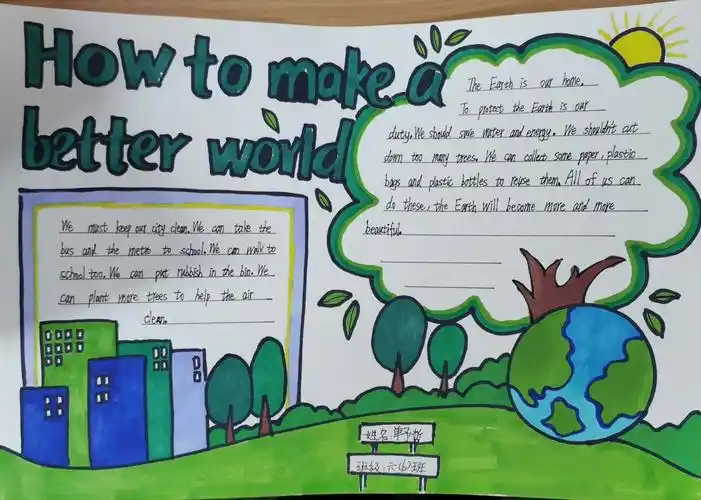 How to make a
better world
The Earth is our home.
To protect the Earth is our
duty. We should save water and energy. We shouldn't cut
down too many trees. We can collect some paper, plastic
bags and plastic bottles to reuse them. All of us can
do these, the Earth will become more and more
beautiful.
We must keep our city clean. We can take the
bus and the metro to school. We can walk to
school too. We can put rubbish in the bin. We
can plant more trees to help the air
clean.
姓名:单予哲
班级:六(6)班